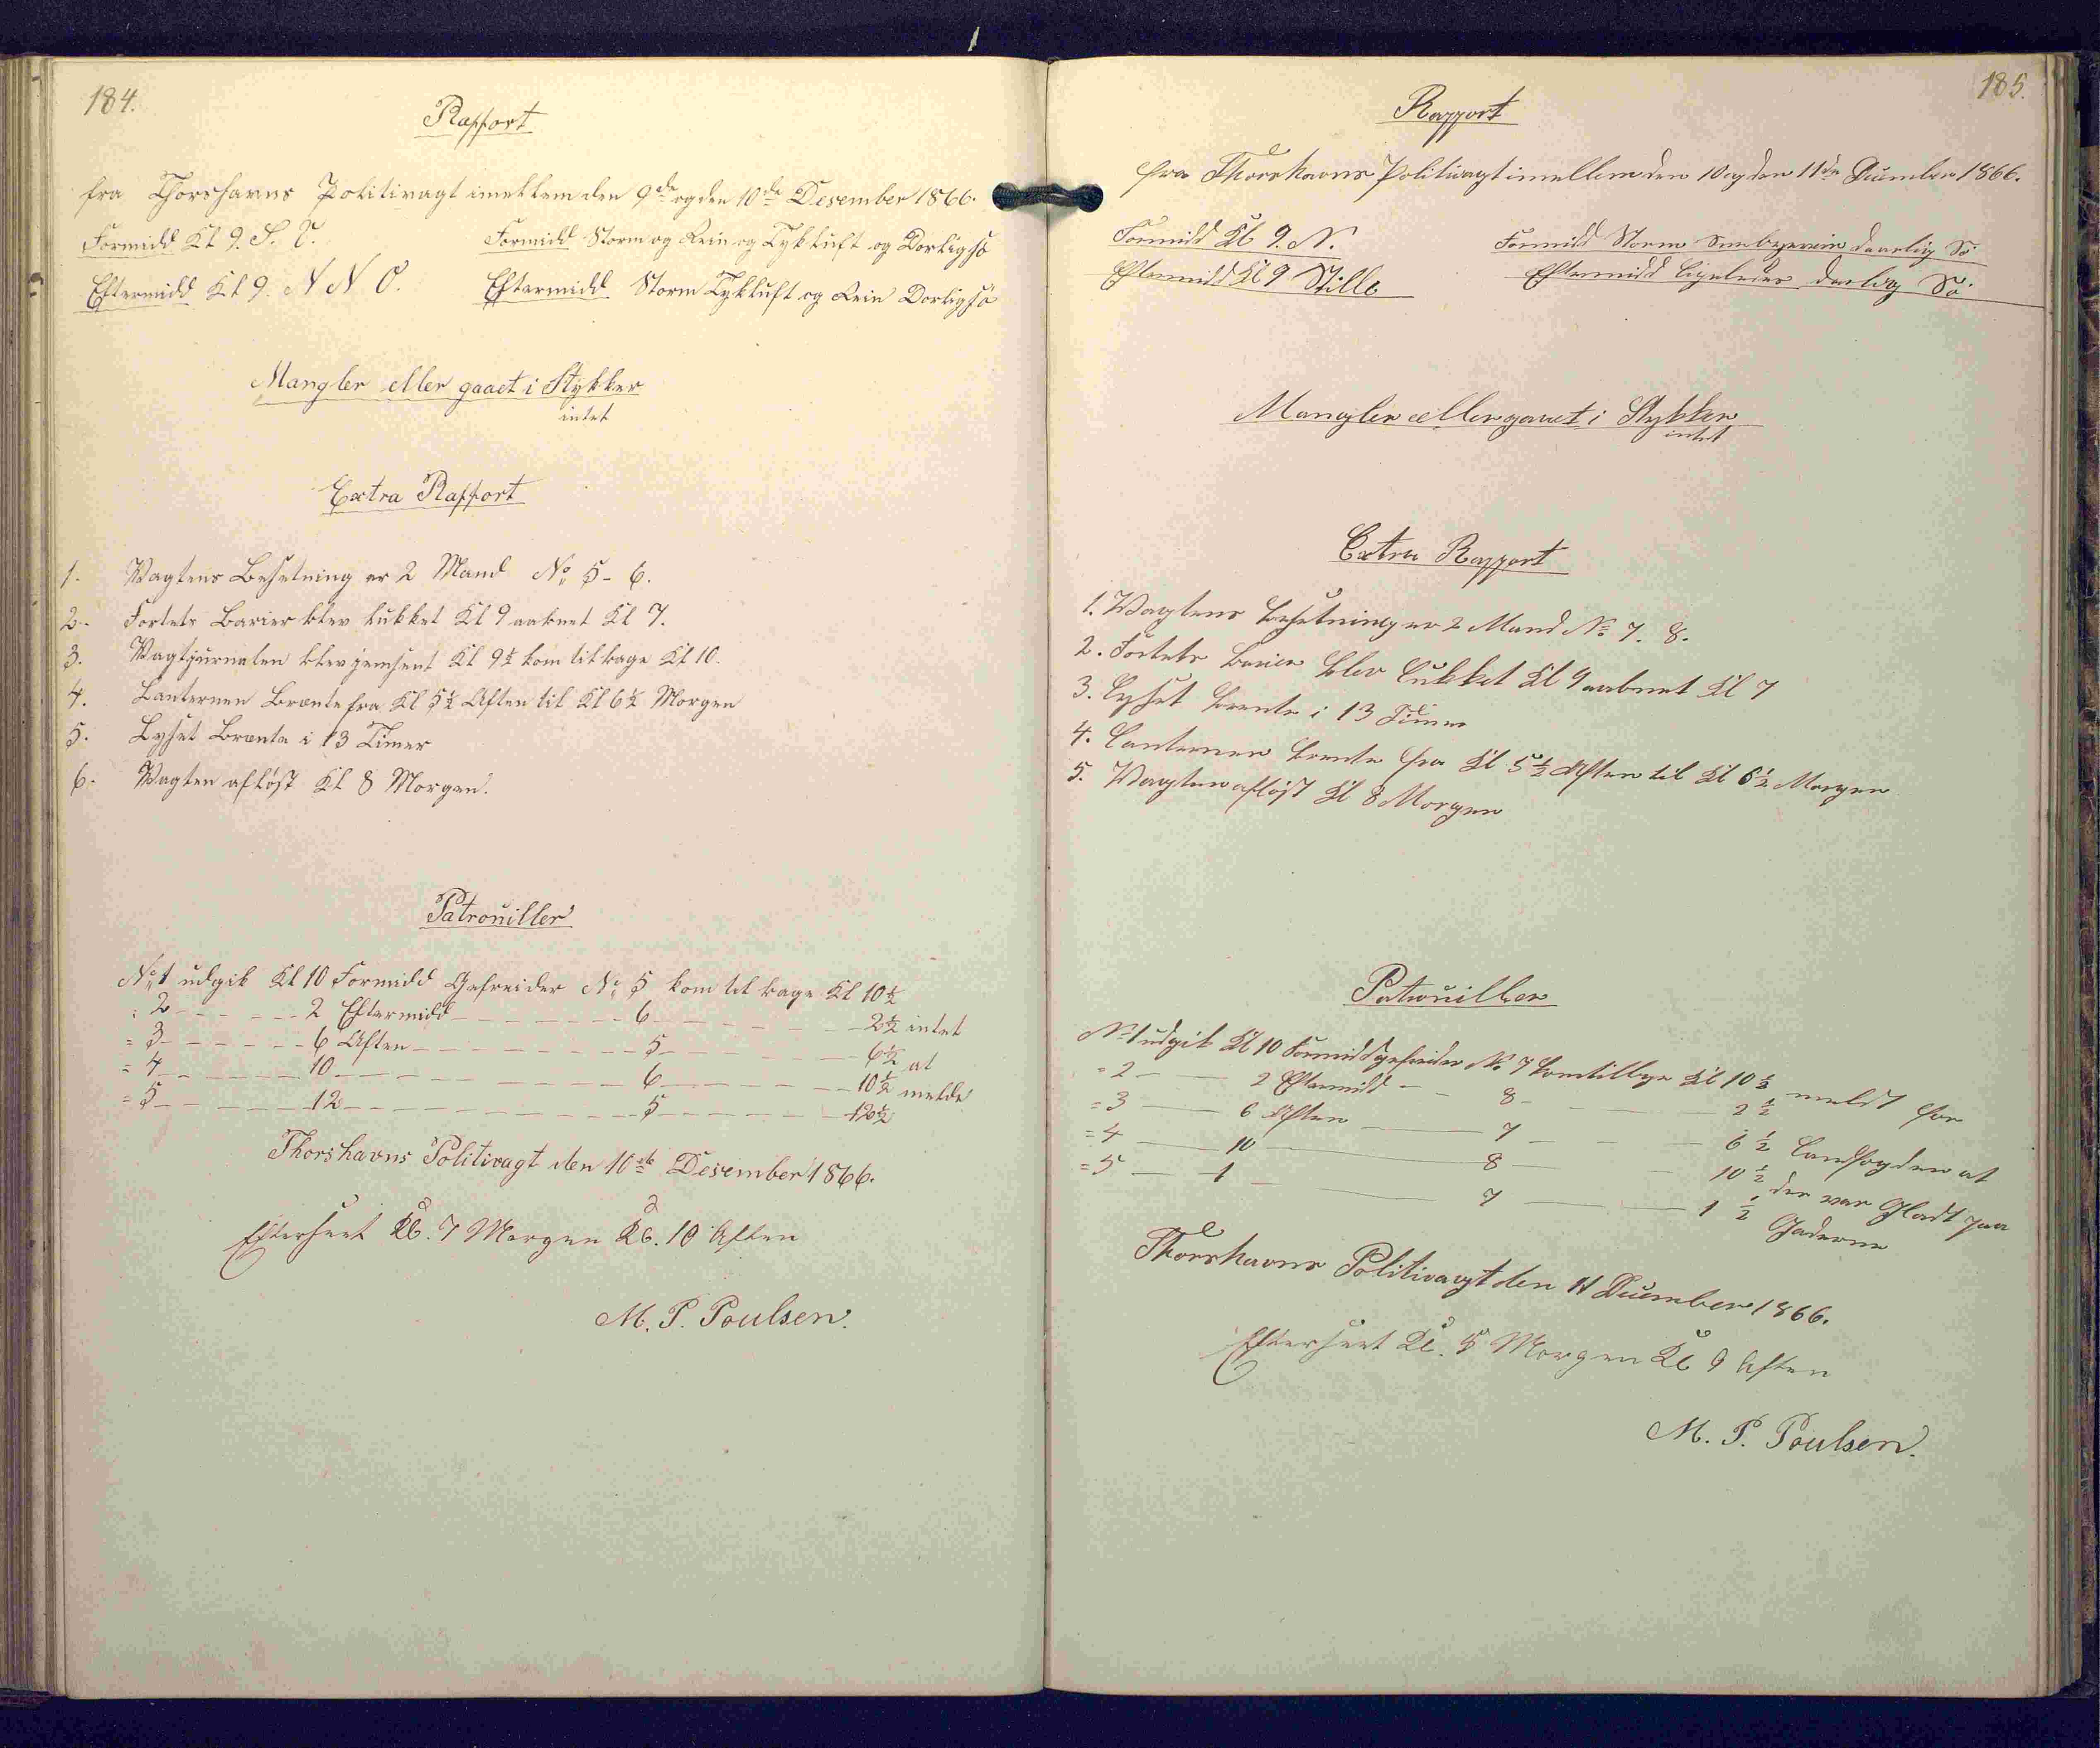 184.
Rapport
fra Thorshavns Politivagt imellem den 9de og den 10de Desember 1866.
Formidd Kl 9. S. V.
Formidd Storm og Rein og Tykluft og Dorligsø
Eftermidd Kl 9. N N O.
Eftermidd Storm Tykluft og Rein Dorligsø
Mangler eller gaaet i Stykker
intet
Extra Rapport
1. Vagtens Besetning er 2 Mand No 5 - 6.
2. Fortets Barier blev lukket Kl 9 aabnet Kl 7.
3. Vagtjurnalen blev jemsent Kl 9½ kom tilbage Kl 10.
4. Lanternen Brænte fra Kl 5½ Aften til Kl 6½ Morgen
5. Lyset Brænte i 13 Timer
6. Vagten afløst Kl 8 Morgen.
Patrouiller
No 1 udgik Kl 10 Formidd Gefreider No 5 kom tilbage Kl 10½
" 2 - - - 2 Eftermidd - - - 6 - - - 2½ intet
= 3 - - - 6 Aften - - - 5 - - - 6½ at
= 4 - - - 10 - - - 6 - - - 10½ melde
= 5 - - - 12 - - - 5 - - - 12½
Thorshavns Politivagt den 10de Desember 1866.
Efterseet Kl. 7 Morgen Kl. 10 Aften
M. P. Poulsen.
185.
Rapport
fra Thorshavns Politivagt imellem den 10 og den 11de Decimber 1866.
Formidd Kl 9. N.
Formidd Storm daarlig Sø
Eftermidd Kl 9 Stille
Eftermidd ligeledes darlig Sø
Mangler eller gaaet i Stykker
intet
Extra Rapport
1. Vagtens Besetning er 2 Mand No 7. 8.
2. Fortets Barier blev lukket Kl 9 aabnet Kl 7
3. Lyset brente i 13 Timer
4. Lanternen brente fra Kl 5½ Aften til Kl 6½ Morgen
5. Vagten afløst Kl 8 Morgen
Patrouiller
No 1 udgik Kl 10 Formidd gefreider No 7 kom tilbage Kl 10½ meldt for
= 2 - - 2 Eftermidd - - 8 - - 2½
= 3 - - 6 Aften - - 7 - - 6½ Landfogden at
= 4 - - 10 - - 8 - - 10½ der var Gladt paa
= 5 - - 1 - - 7 - - 1½ Gaderne
Thorshavns Politivagt den 11 Decimber 1866.
Efterseet Kl. 5 Morgen Kl 9 Aften
M. P. Poulsen.